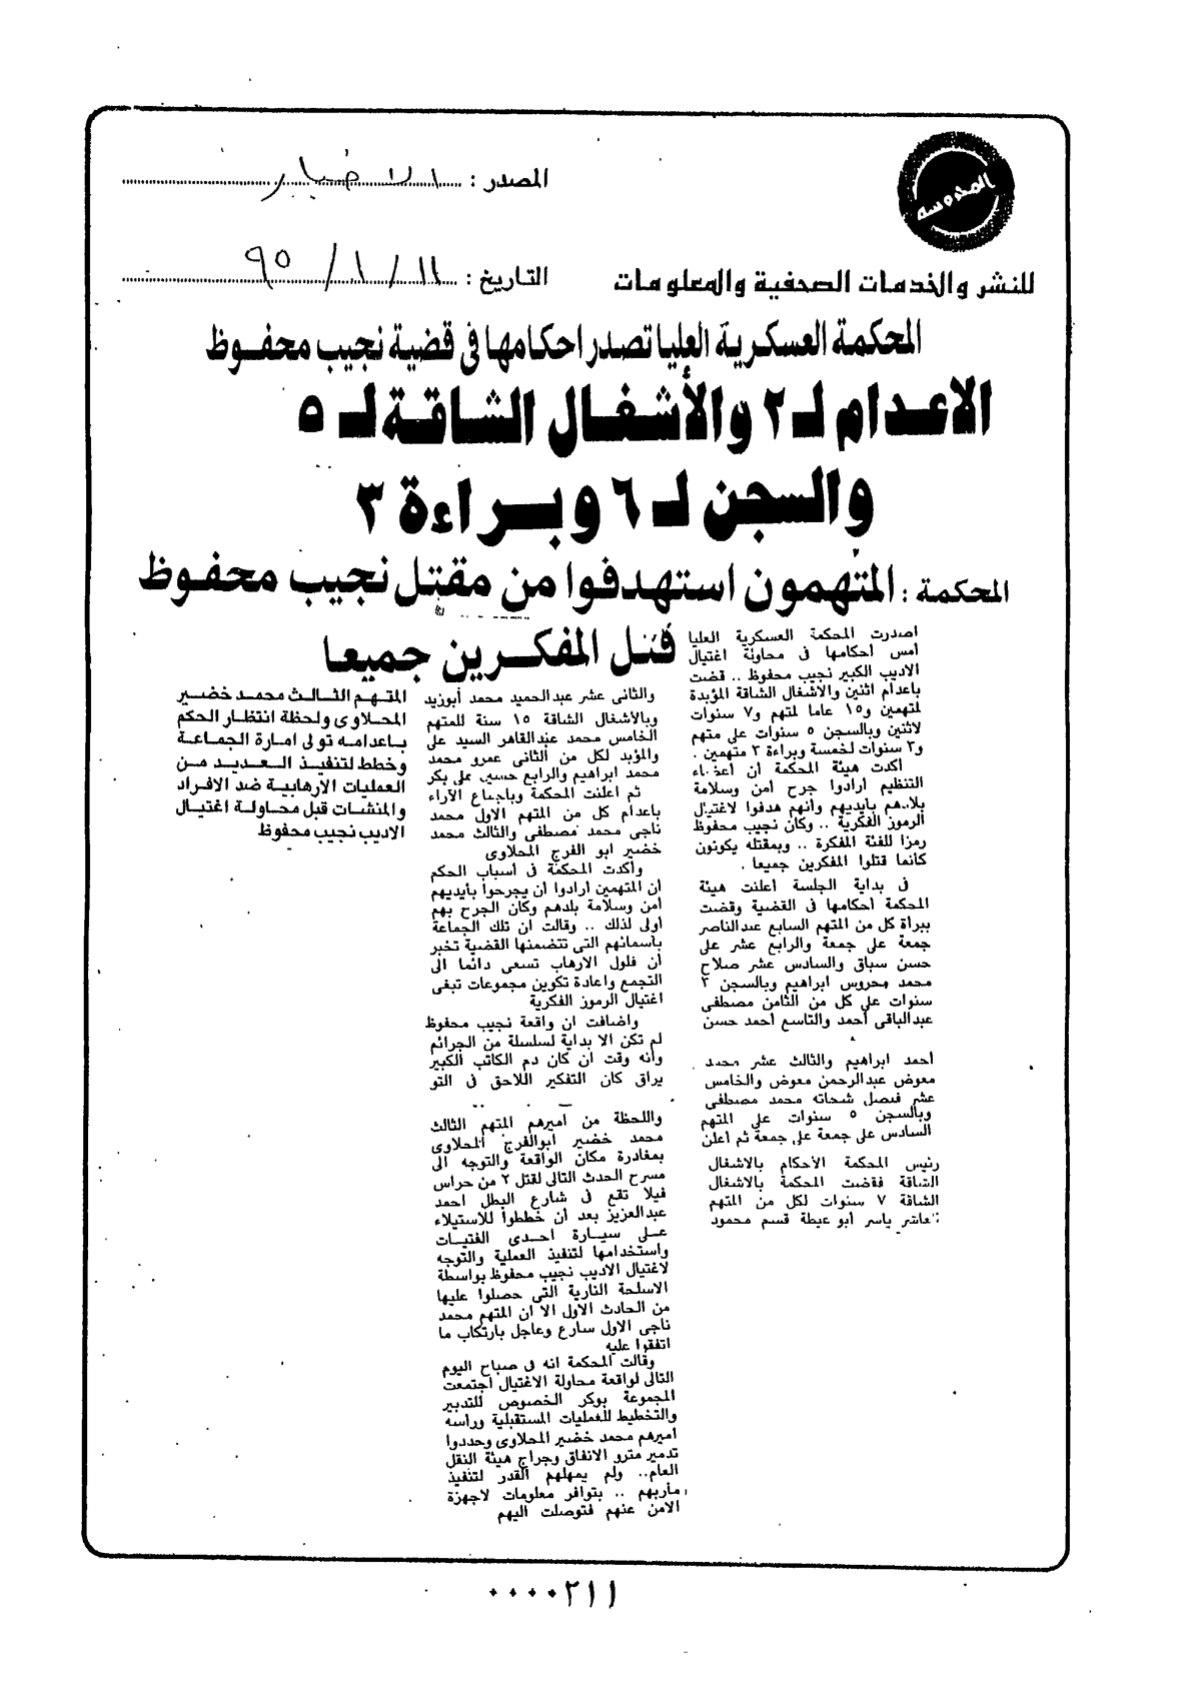 المحروسة
المصدر : الاخبار
للنشر والخدمات الصحفية والمعلومات
التاريخ : ١١ / ١ / ٩٥
المحكمة العسكرية العليا تصدر احكامها فى قضية نجيب محفوظ
الاعدام لـ ٢ والأشغال الشاقة لـ ٥
والسجن لـ ٦ وبراءة ٣
المحكمة : المتهمون استهدفوا من مقتل نجيب محفوظ
قتل المفكرين جميعا
أصدرت المحكمة العسكرية العليا
أمس أحكامها فى محاولة اغتيال
الاديب الكبير نجيب محفوظ .. قضت
باعدام اثنين والاشغال الشاقة المؤبدة
لمتهمين و١٥ عاما لمتهم و٧ سنوات
لاثنين وبالسجن ٥ سنوات على متهم
و٣ سنوات لخمسة وبراءة ٣ متهمين .
أكدت هيئة المحكمة أن أعضاء
التنظيم أرادوا جرح أمن وسلامة
بلادهم بأيديهم وأنهم هدفوا لاغتيال
الرموز الفكرية .. وكان نجيب محفوظ
رمزا للفئة المفكرة .. وبمقتله يكونون
كأنما قتلوا المفكرين جميعا .
فى بداية الجلسة اعلنت هيئة
المحكمة أحكامها فى القضية وقضت
ببرأة كل من المتهم السابع عبدالناصر
جمعة على جمعة والرابع عشر على
حسن سباق والسادس عشر صلاح
محمد محروس ابراهيم وبالسجن ٣
سنوات على كل من الثامن مصطفى
عبدالباقى أحمد والتاسع أحمد حسن
أحمد ابراهيم والثالث عشر محمد
معوض عبدالرحمن معوض والخامس
عشر فيصل شحاته محمد مصطفى
وبالسجن ٥ سنوات على المتهم
السادس على جمعة على جمعة ثم أعلن
رئيس المحكمة الأحكام بالاشغال
الشاقة فقضت المحكمة بالاشغال
الشاقة ٧ سنوات لكل من المتهم
العاشر ياسر أبو عيطة قسم محمود
والثانى عشر عبدالحميد محمد أبوزيد
وبالأشغال الشاقة ١٥ سنة للمتهم
الخامس محمد عبدالقاهر السيد على
والمؤبد لكل من الثانى عمرو محمد
محمد ابراهيم والرابع حسين على بكر
ثم اعلنت المحكمة وباجماع الآراء
باعدام كل من المتهم الاول محمد
ناجى محمد مصطفى والثالث محمد
خضير ابو الفرج المحلاوى
وأكدت المحكمة فى أسباب الحكم
أن المتهمين ارادوا ان يجرحوا بأيديهم
أمن وسلامة بلدهم وكان الجرح بهم
أولى لذلك .. وقالت ان تلك الجماعة
بأسمائهم التى تتضمنها القضية تخبر
أن فلول الارهاب تسعى دائما الى
التجمع واعادة تكوين مجموعات تبغى
اغتيال الرموز الفكرية
واضافت ان واقعة نجيب محفوظ
لم تكن الا بداية لسلسلة من الجرائم
وأنه وقت أن كان دم الكاتب الكبير
يراق كان التفكير اللاحق فى التو
واللحظة من أميرهم المتهم الثالث
محمد خضير ابوالفرج المحلاوى
بمغادرة مكان الواقعة والتوجه الى
مسرح الحدث التالى لقتل ٢ من حراس
فيلا تقع فى شارع البطل احمد
عبدالعزيز بعد أن خططوا للاستيلاء
على سيارة احدى الفتيات
واستخدامها لتنفيذ العملية والتوجه
لاغتيال الاديب نجيب محفوظ بواسطة
الاسلحة النارية التى حصلوا عليها
من الحادث الاول الا ان المتهم محمد
ناجى الاول سارع وعاجل بارتكاب ما
اتفقوا عليه
وقالت المحكمة انه فى صباح اليوم
التالى لواقعة محاولة الاغتيال اجتمعت
المجموعة بوكر الخصوص للتدبير
والتخطيط للعمليات المستقبلية وراسه
أميرهم محمد خضير المحلاوى وحددوا
تدمير مترو الانفاق وجراج هيئة النقل
العام.. ولم يمهلهم القدر لتنفيذ
مأربهم .. بتوافر معلومات لاجهزة
الامن عنهم فتوصلت اليهم
المتهم الثالث محمد خضير
المحلاوى ولحظة انتظار الحكم
باعدامه تولى امارة الجماعة
وخطط لتنفيذ العديد من
العمليات الارهابية ضد الافراد
والمنشات قبل محاولة اغتيال
الاديب نجيب محفوظ
٠٠٠٠٢١١